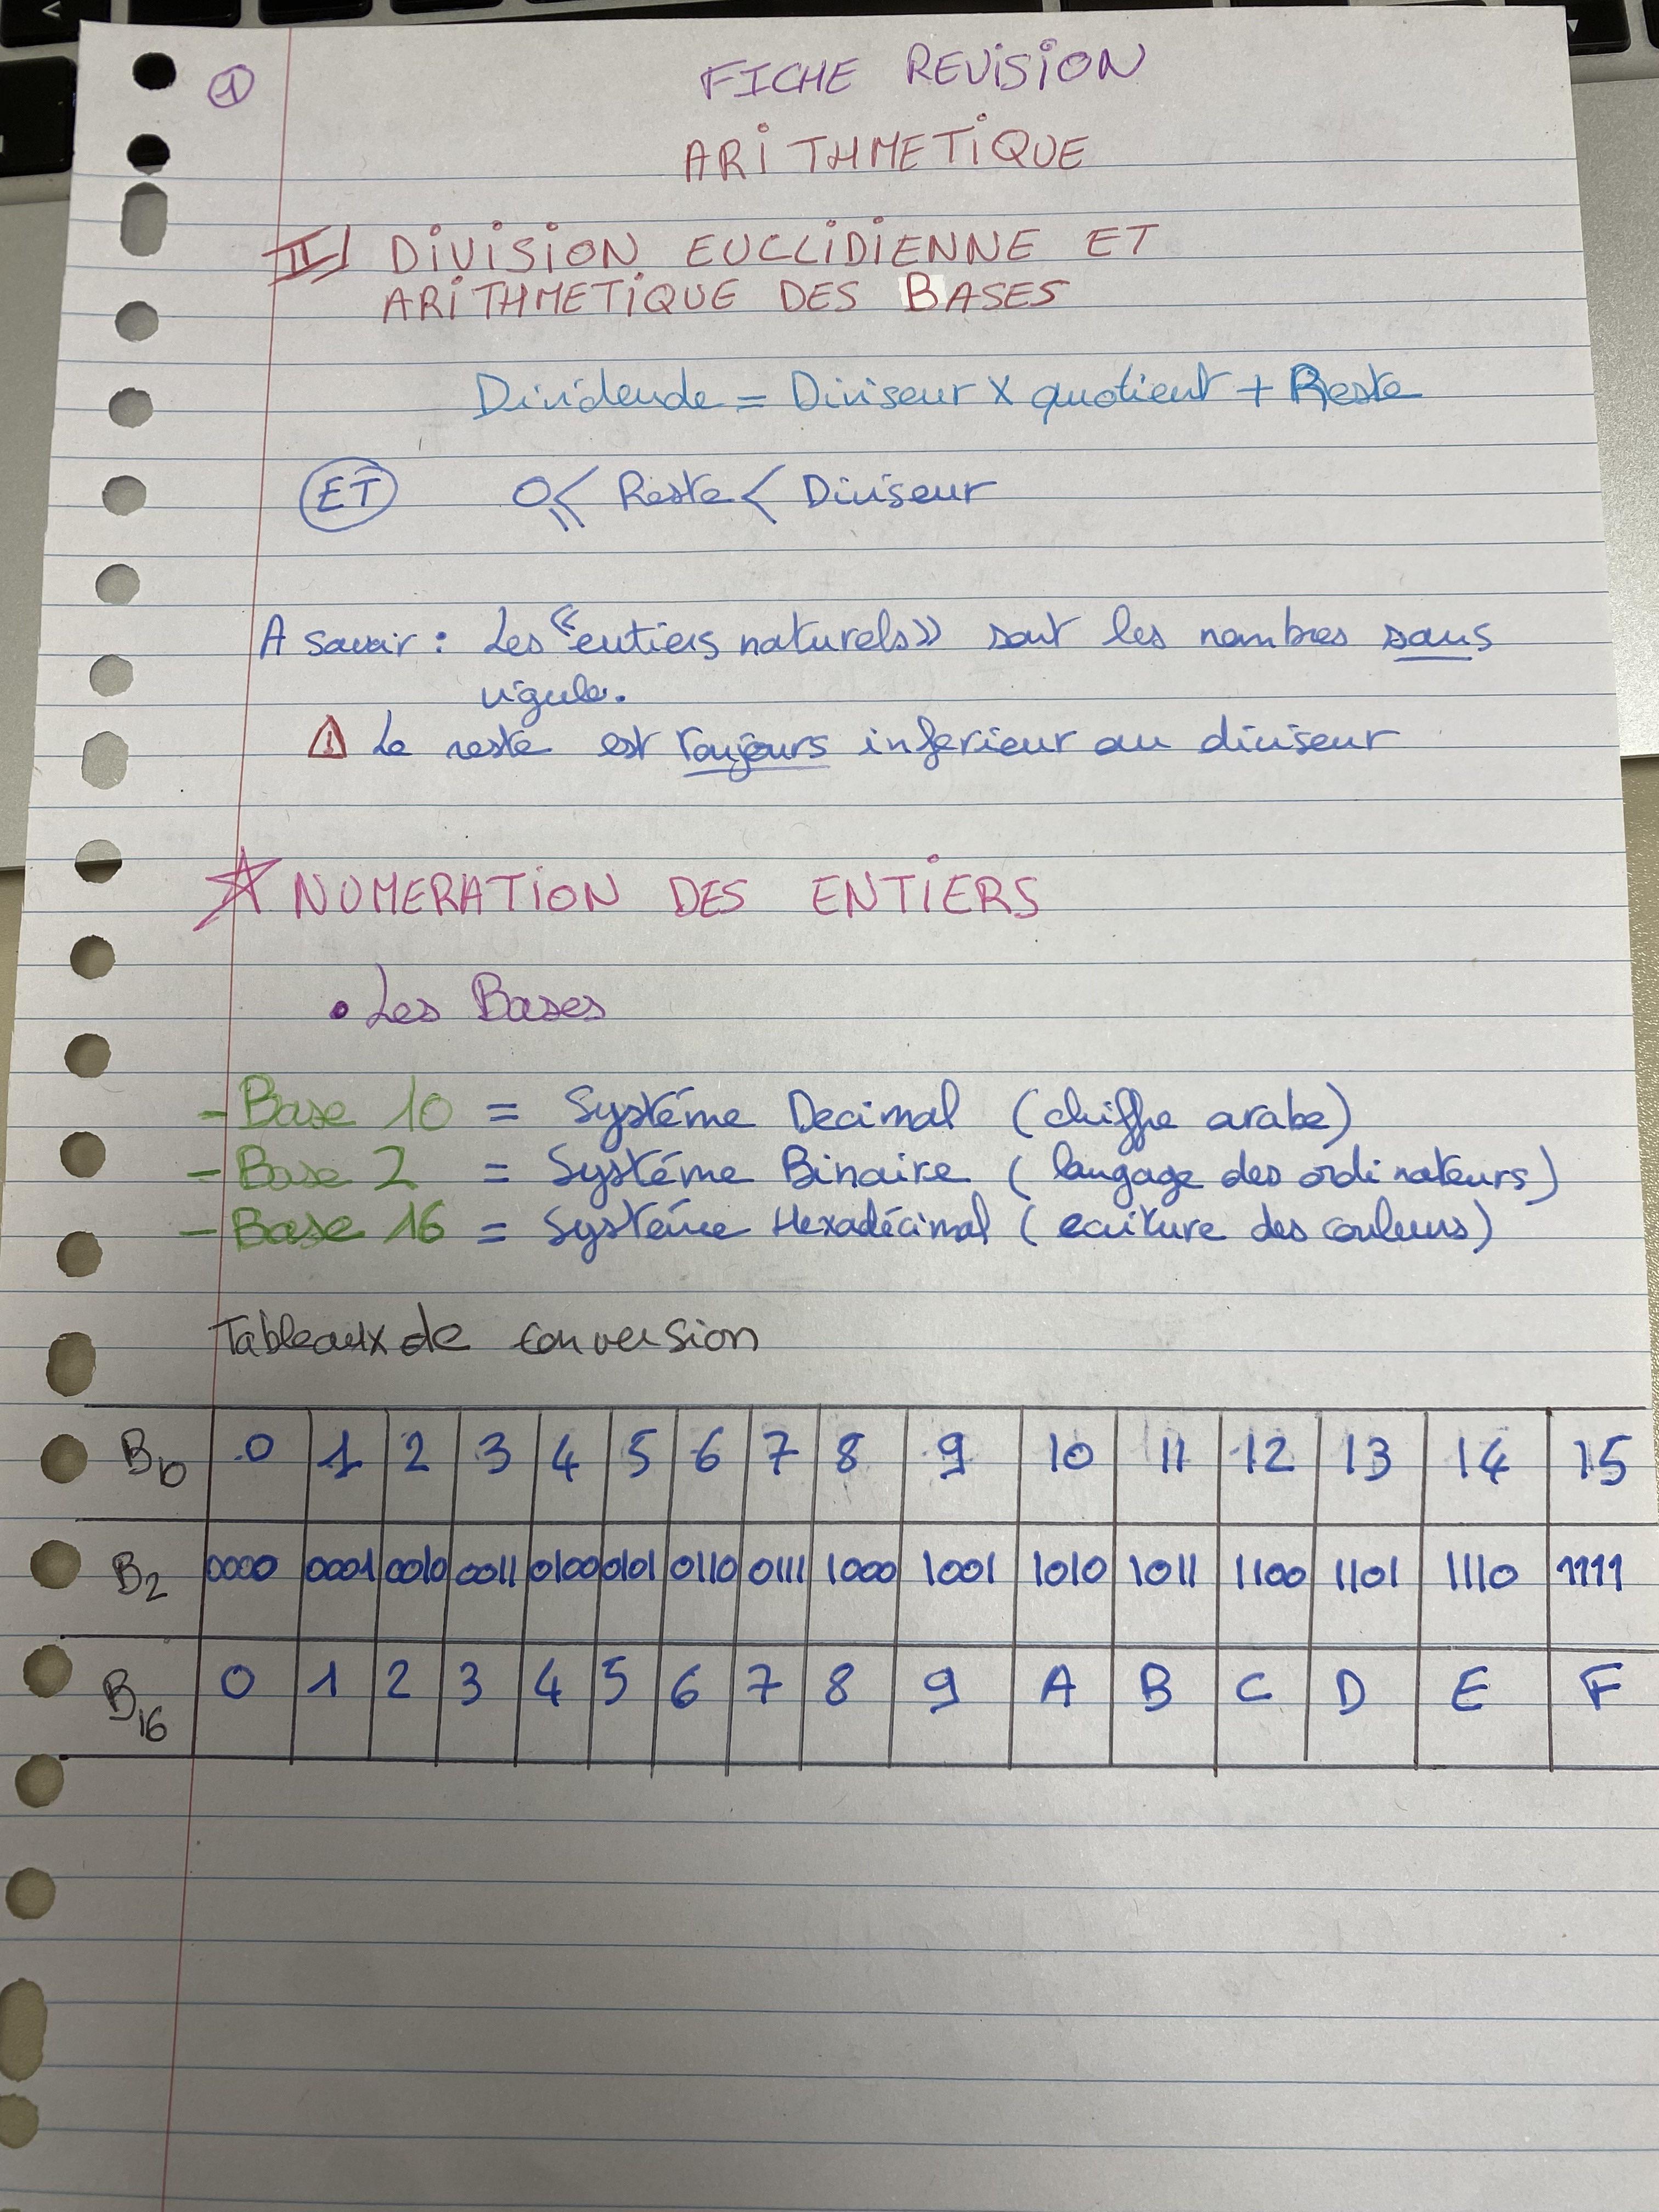 1
FICHE REVISION
ARITHMETIQUE
II/ DIVISION EUCLIDIENNE ET
ARITHMETIQUE DES BASES
Dividende = Diviseur X quotient + Reste
ET 0 ⩽ Reste < Diviseur
A savoir : Les «entiers naturels» sont les nombres sans
vigule.
⚠ Le reste est toujours inferieur au diviseur
☆ NUMERATION DES ENTIERS
• Les Bases
- Base 10 = Systéme Decimal (chiffre arabe)
- Base 2 = Systéme Binaire (langage des ordinateurs)
- Base 16 = Systéme Hexadécimal (ecriture des couleurs)
Tableaux de conversion
B10 0 1 2 3 4 5 6 7 8 9 10 11 12 13 14 15
B2 0000 0001 0010 0011 0100 0101 0110 0111 1000 1001 1010 1011 1100 1101 1110 1111
B16 0 1 2 3 4 5 6 7 8 9 A B C D E F